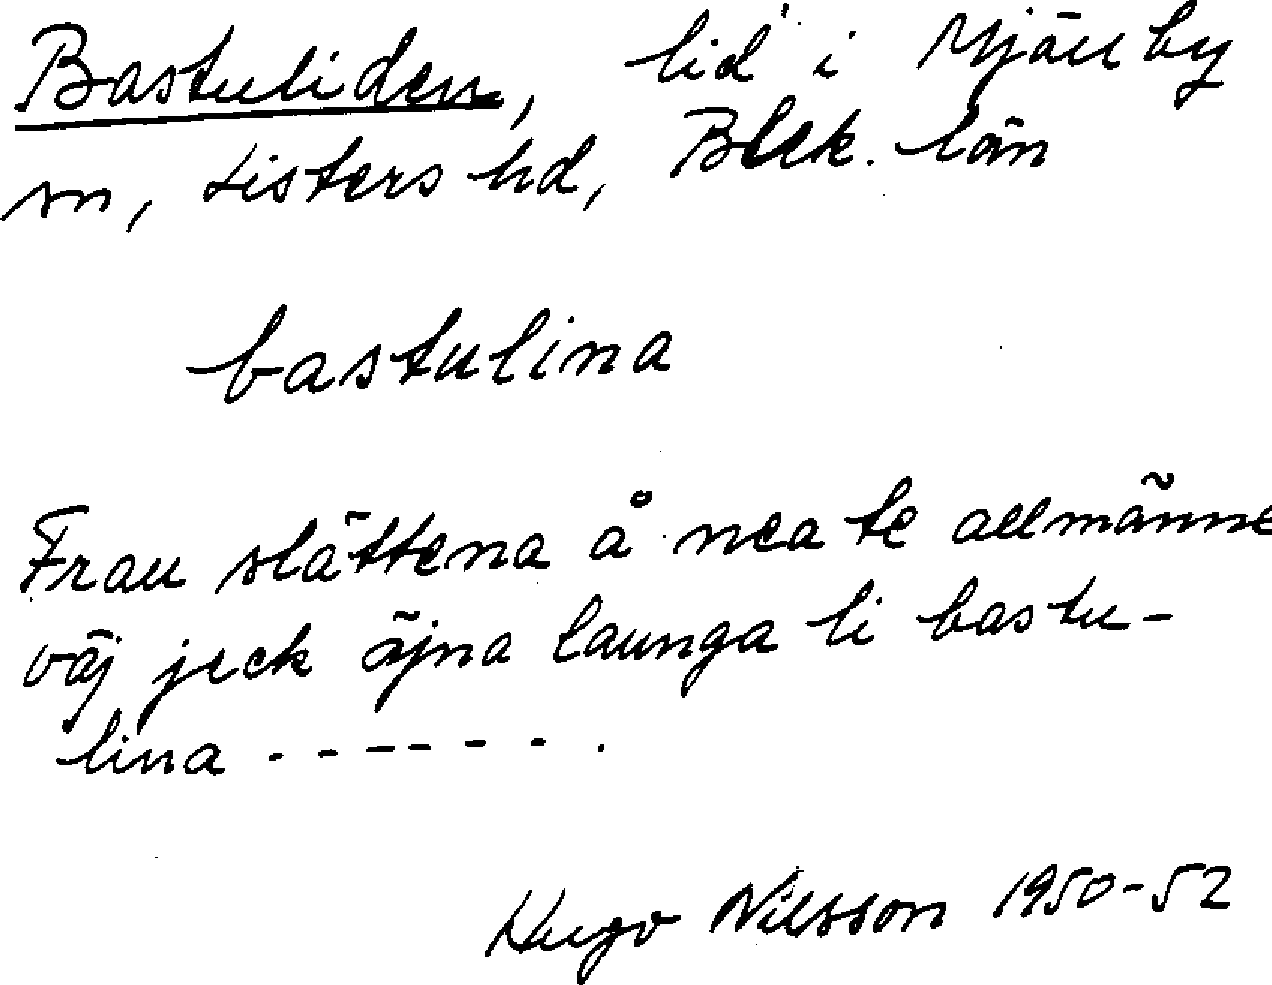 Bastuliden, lid i Mjällby
sn, Listers hd, Blek. län
bastulina
Frau slättena å nea te allmänne
väj jeck äjna launga li bastu-
lina - - - - - - .
Hugo Nilsson 1950-52